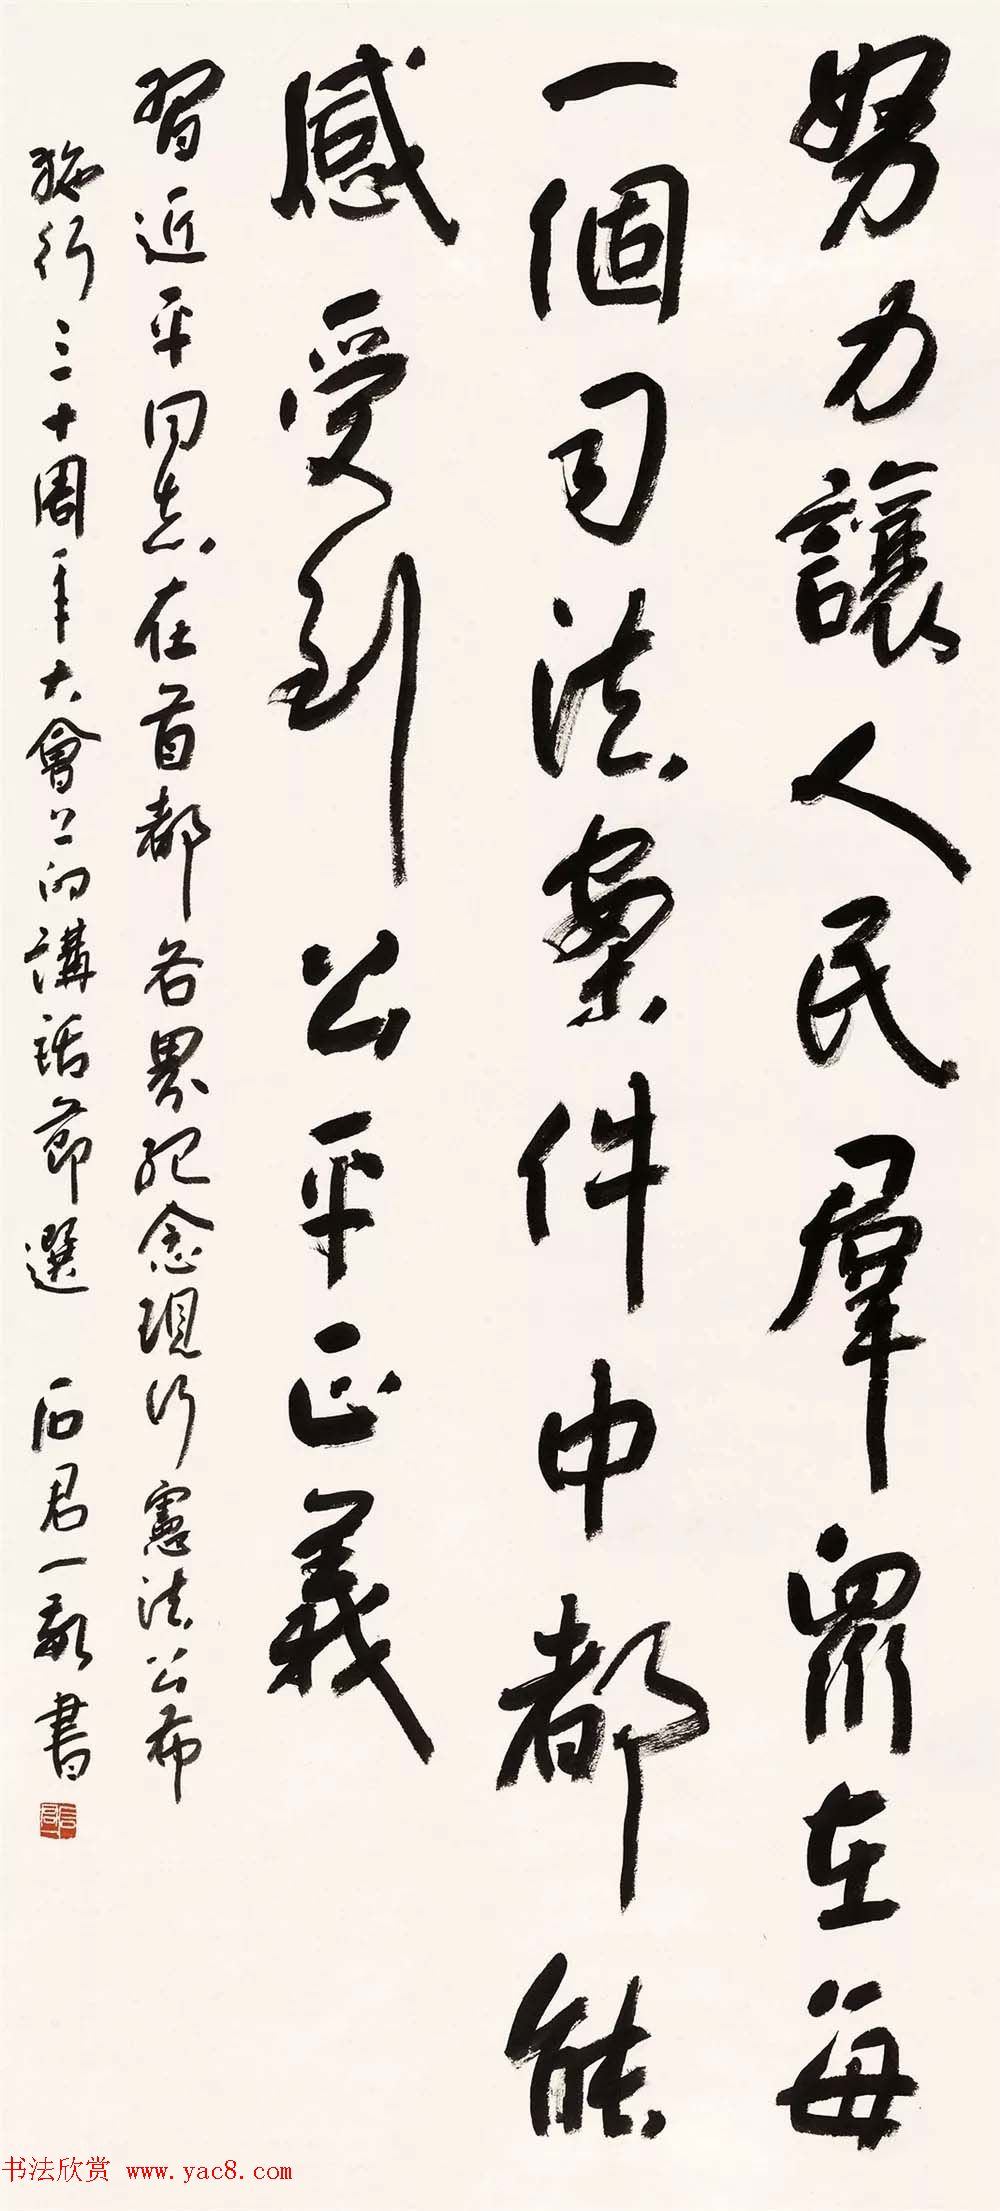 努力讓人民羣眾在每
一個司法案件中都能
感受到公平正義
習近平同志在首都各界紀念現行憲法公布
施行三十周年大會上的講話節選 石君一敬書
书法欣赏 www.yac8.com